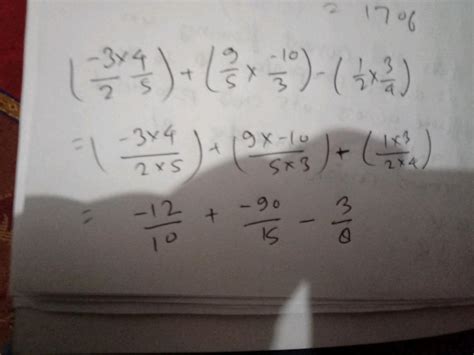 = 1706
(-3/2 × 4/5) + (9/5 × -10/3) - (1/2 × 3/4)
= (-3×4 / 2×5) + (9×-10 / 5×3) + (1×3 / 2×4)
= -12/10 + -90/15 - 3/8